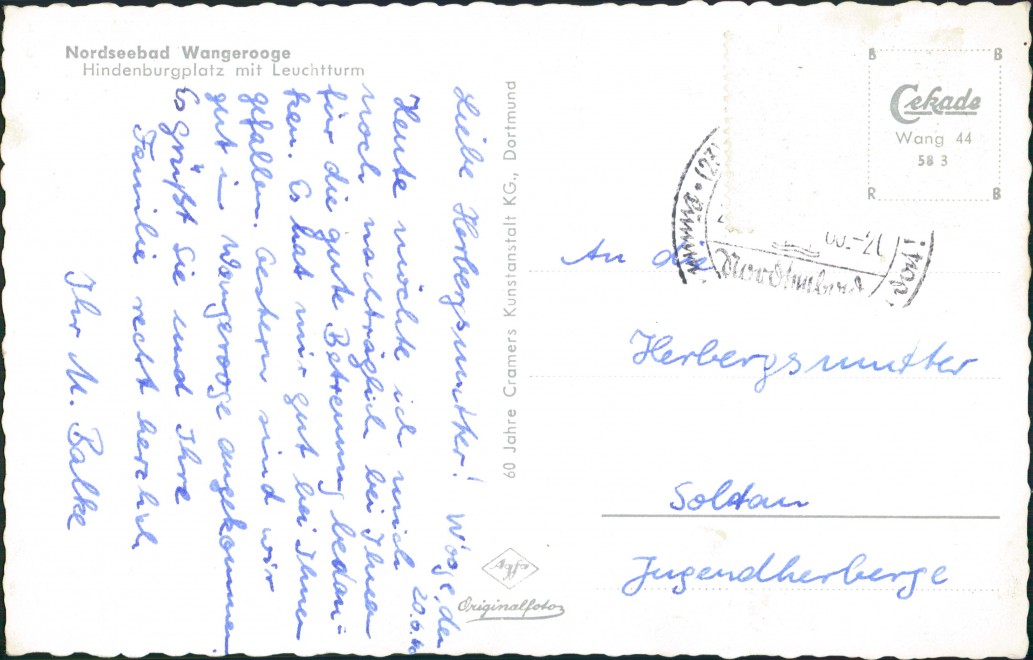 Nordseebad Wangerooge
Hindenburgplatz mit Leuchtturm
Wooge, den
20.6.
Liebe Herbergsmutter!
Heute möchte ich mich
noch nachträglich bei Ihnen
für die gute Betreuung bedan-
ken. Es hat mir gut bei Ihnen
gefallen. Gestern sind wir
gut in Wangerooge angekommen.
Es grüßt Sie und Ihre
Familie recht herzlich
Ihr M. Balke
60 Jahre Cramers Kunstanstalt KG., Dortmund
Agfa
Originalfotos
B B
Cekade
Wang 44
58 3
R B
(23)
Nordseebad
An die
Herbergsmutter
Soltau
Jugendherberge